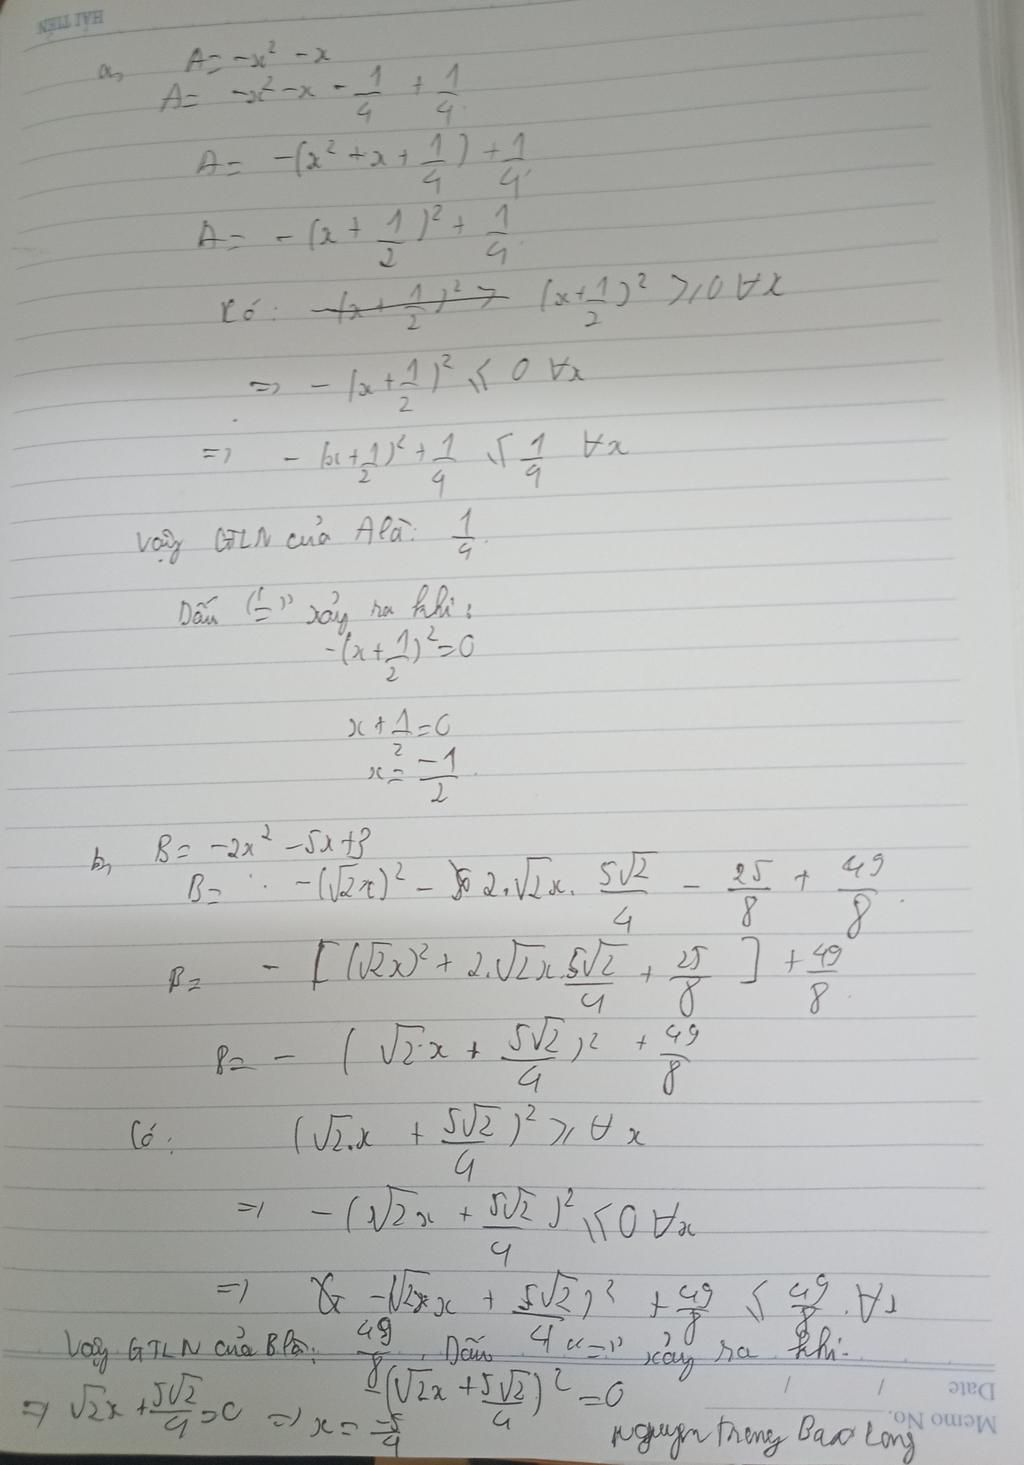 HẢI TIẾN
a, A = -x² - x
A = -x² - x - 1/4 + 1/4
A = -(x² + x + 1/4) + 1/4
A = -(x + 1/2)² + 1/4
Có: (x + 1/2)² ≥ 0 ∀x
=> -(x + 1/2)² ≤ 0 ∀x
=> -(x + 1/2)² + 1/4 ≤ 1/4 ∀x
Vậy GTLN của A là: 1/4.
Dấu "=" xảy ra khi:
-(x + 1/2)² = 0
x + 1/2 = 0
x = -1/2
b, B = -2x² - 5x + 3
B = -(√2x)² - 2.√2x. 5√2/4 - 25/8 + 49/8.
B = -[(√2x)² + 2.√2x.5√2/4 + 25/8] + 49/8.
B = -(√2.x + 5√2/4)² + 49/8
Có: (√2.x + 5√2/4)² ≥ ∀x
=> -(√2x + 5√2/4)² ≤ 0 ∀x
=> -(√2x + 5√2/4)² + 49/8 ≤ 49/8. ∀x
Vậy GTLN của B là: 49/8. Dấu "=" xảy ra khi.
-(√2x + 5√2/4)² = 0
=> √2x + 5√2/4 = 0 => x = -5/4
Date / /
Memo No.
Nguyen Trong Bao Long